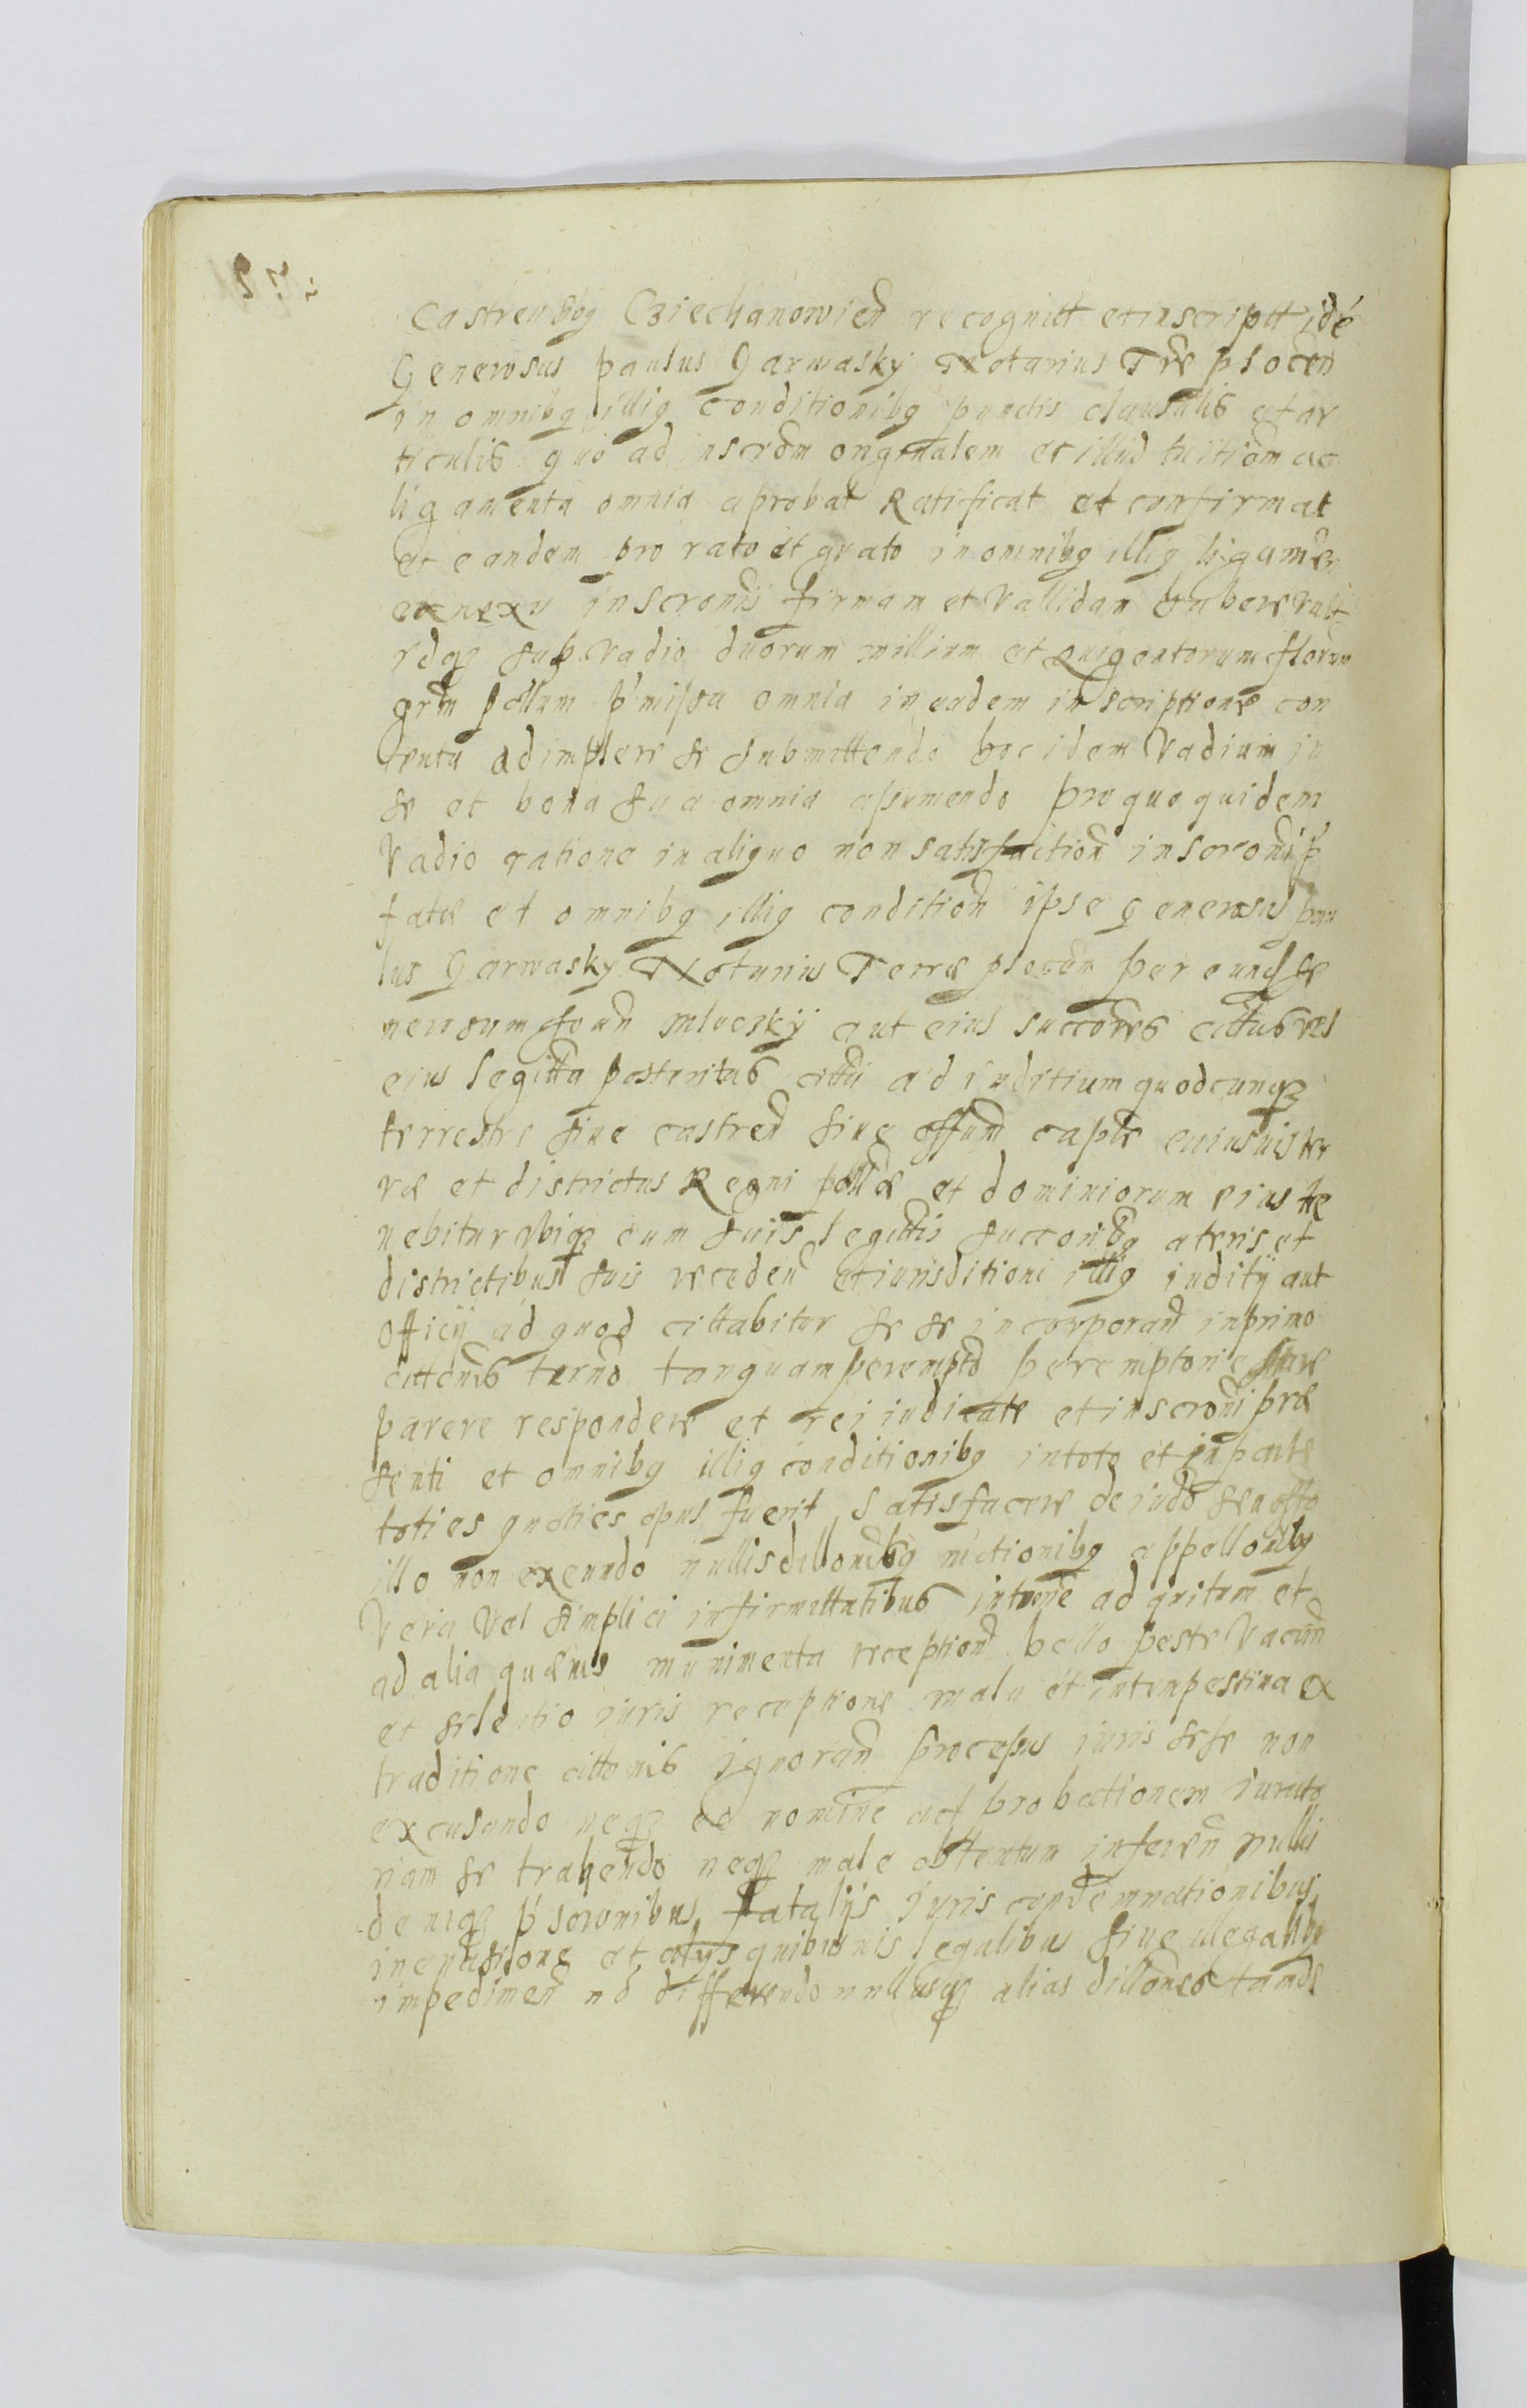 Castrensibq Cziechanowien recognitt et inscriptt idé
Generosus paulus Garwasky Notarius Tre plocen
in omnibq illiq conditionibq punctis clausulis et ar
ticulis quo ad inscrom originalem et illius
ligamenta omnia aprobat Ratificat et confirmat
et eandem pro rato et grato in omnibq illiq ligamen
et nexu inscronis firmam et vallidam habere vult
idqz sub vadio duorum millium et quigentorum floren
grm pollum pmissa omnia in eadem inscriptione con
tenta adimplere se submittendo hoc idem vadium in
se et bona sua omnia assumendo pro quo quidem
vadio ratione in aliquo non satisfaction inscronis p
fatæ et omnibq illiq condition ipse generosus pau
lus Garwasky Notarius Terræ plocen per eund ge
nerosum Joan Mlocsky aut eius succores cittus vel
eius legitta posteritas ad iuditium quodcunqz
terrestre siue castren siue offum caple cuiusuis ter
ræ et districtus Regni pollæ et dominiorum eius te
nebitur ibiqz cum suis legittis succoribq a teris et
districtibus suis receden et iurisditioni illiq iuditÿ aut
officÿ ad quod cittabitur se se incorporan in primo
cittonis termo tanquam perempto peremptorie stare
parere respondere et rei iudicate et inscroni præ
senti et omnibq illiq conditionibq in toto et in parte
toties quoties opus fuerit satisfacere de iudo seu offo
illo non exeundo nullis dillonibq motionibq appellonibq
vera vel simplici infirmittatibus ad quitam et
ad alia quæuis munimenta reception bello peste vacan
et silentio iuris receptione mala et intempestiua ex
traditione cittonis ignoran processus iuris sese non
excusando neqz eo nomine ad probationem iurato
riam se trahendo neqz male obtentum inferen nulli
deniqz pscronibus fatalÿs iuris condemnationibus
incussione et alÿs quibusuis legalibus siue illegalibq
impedimen no differendo nullasqz alias dillones tamde